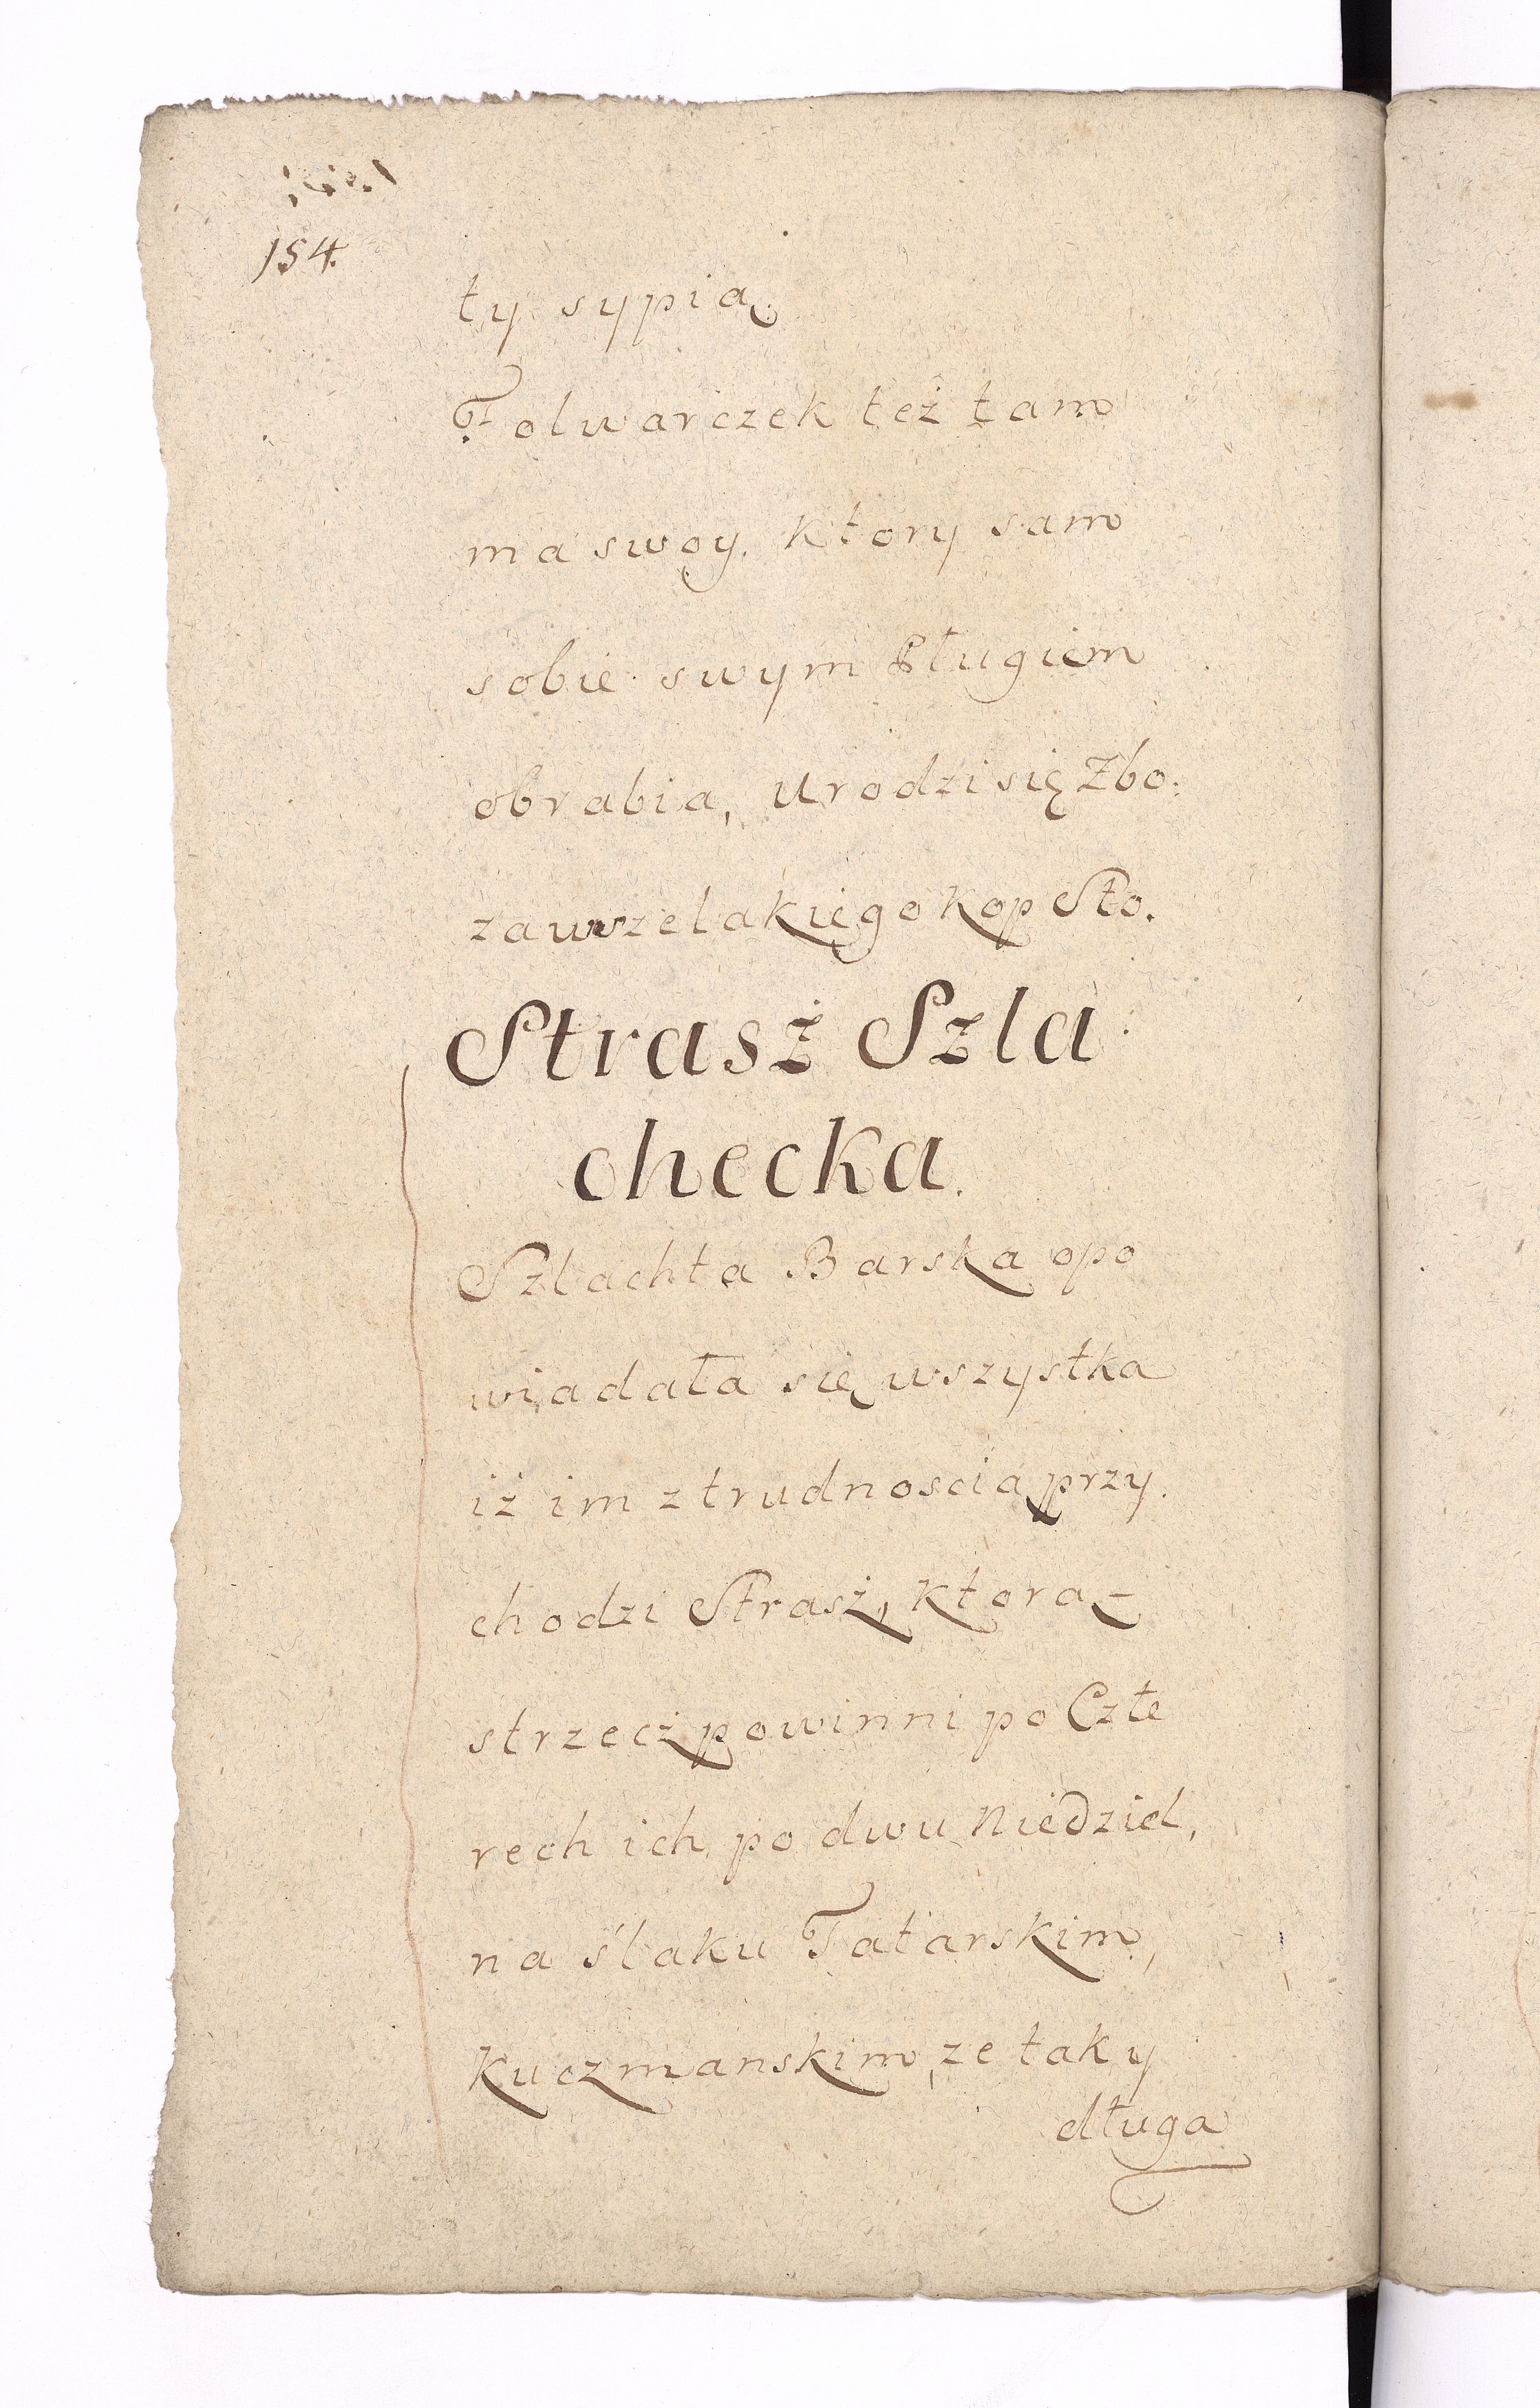 154.
ty sypią
Folwarczek też tam
ma swoy. Ktory sam
sobie swym Pługiem
obrabia, urodzi się Zbo:
za wszelakiego Kop Sto.
Strasż Szla
checka.
Szlachta Barska opo
wiadała się wszystka
iż im z trudnoscią przy.
chodzi Strasż, Ktorą –
strzecż powinni po Czte
rech ich po dwu Niedziel,
na ślaku Tatarskim,
Kuczmanskim, ze taky
długa